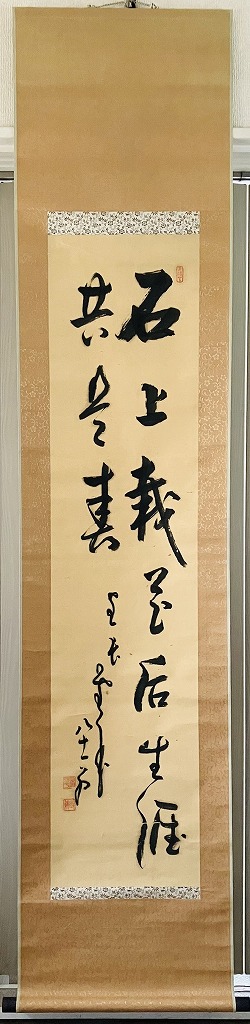 石上栽花后生涯
共是春
八十一翁